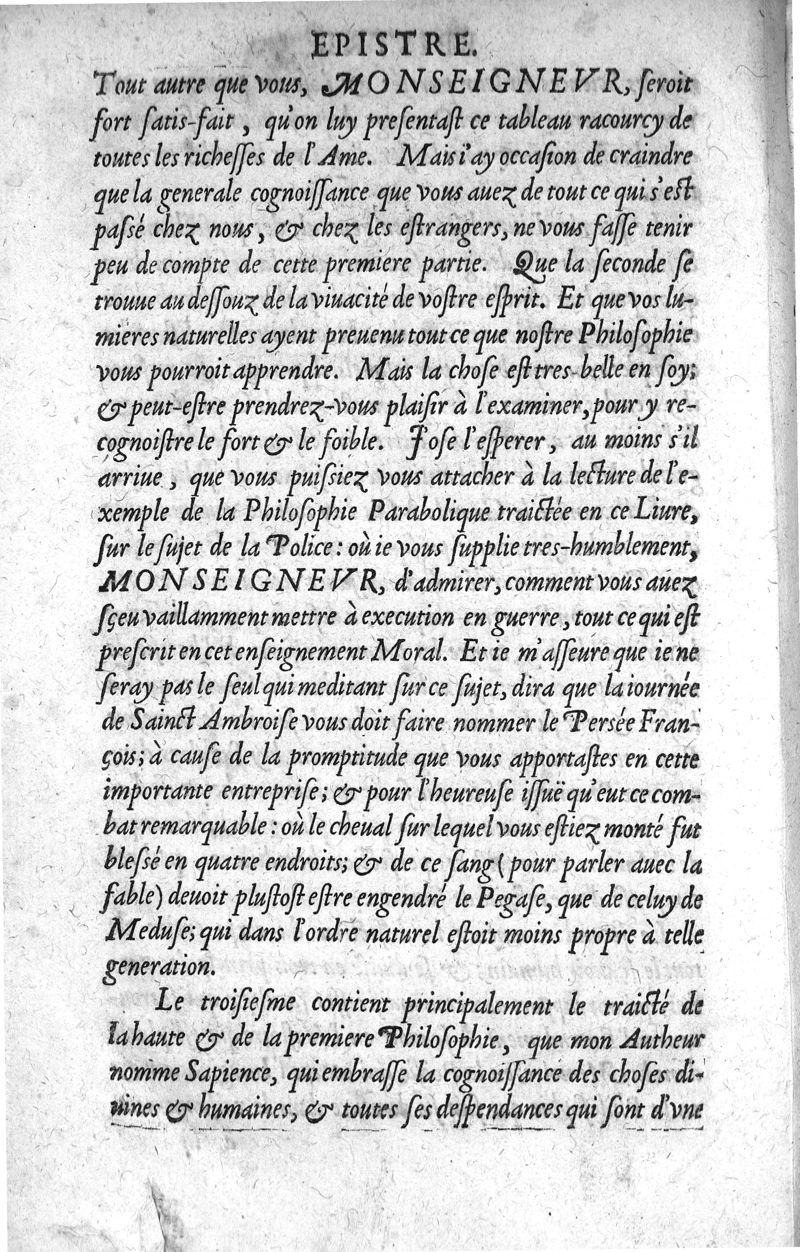 EPISTRE.
Tout autre que vous, MONSEIGNEVR, ſeroit
fort ſatis-fait, qu'on luy preſentaſt ce tableau racourcy de
toutes les richeſſes de l'Ame. Mais i'ay occaſion de craindre
que la generale cognoiſſance que vous auez de tout ce qui s'eſt
paſſé chez nous, & chez les eſtrangers, ne vous faſſe tenir
peu de compte de cette premiere partie. Que la ſeconde ſe
trouue au deſſouz de la viuacité de voſtre eſprit. Et que vos lu-
mieres naturelles ayent preuenu tout ce que noſtre Philoſophie
vous pourroit apprendre. Mais la choſe eſt tres-belle en ſoy;
& peut-eſtre prendrez-vous plaiſir à l'examiner, pour y re-
cognoiſtre le fort & le foible. J'oſe l'eſperer, au moins s'il
arriue, que vous puiſsiez vous attacher à la lecture de l'e-
xemple de la Philoſophie Parabolique traictée en ce Liure,
ſur le ſujet de la Police: où ie vous ſupplie tres-humblement,
MONSEIGNEVR, d'admirer, comment vous auez
ſçeu vaillamment mettre à execution en guerre, tout ce qui eſt
preſcrit en cet enſeignement Moral. Et ie m'aſſeure que ie ne
ſeray pas le ſeul qui meditant ſur ce ſujet, dira que la iournée
de Sainct Ambroiſe vous doit faire nommer le Perſée Fran-
çois; à cauſe de la promptitude que vous apportaſtes en cette
importante entrepriſe; & pour l'heureuſe iſſuë qu'eut ce com-
bat remarquable: où le cheual ſur lequel vous eſtiez monté fut
bleſſé en quatre endroits; & de ce ſang (pour parler auec la
fable) deuoit pluſtoſt eſtre engendré le Pegaſe, que de celuy de
Meduſe; qui dans l'ordre naturel eſtoit moins propre à telle
generation.
Le troiſieſme contient principalement le traicté de
la haute & de la premiere Philoſophie, que mon Autheur
nomme Sapience, qui embraſſe la cognoiſſance des choſes di-
uines & humaines, & toutes ſes deſpendances qui ſont d'vne